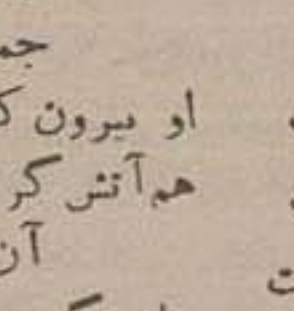 جم
او بیرون ک
هم آتش کر
آن
ت